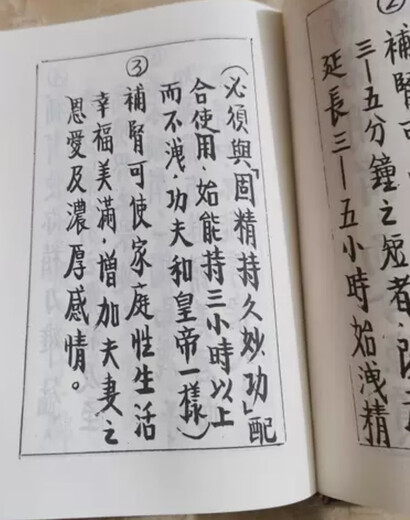 ②
補腎可
三—五分鐘之短者，改
延長三—五小時始洩精
（必須與「固精持久妙功」配
合使用，始能持三小時以上
而不洩，功夫和皇帝一樣）
③
補腎可使家庭性生活
幸福美滿，增加夫妻之
恩愛及濃厚感情。